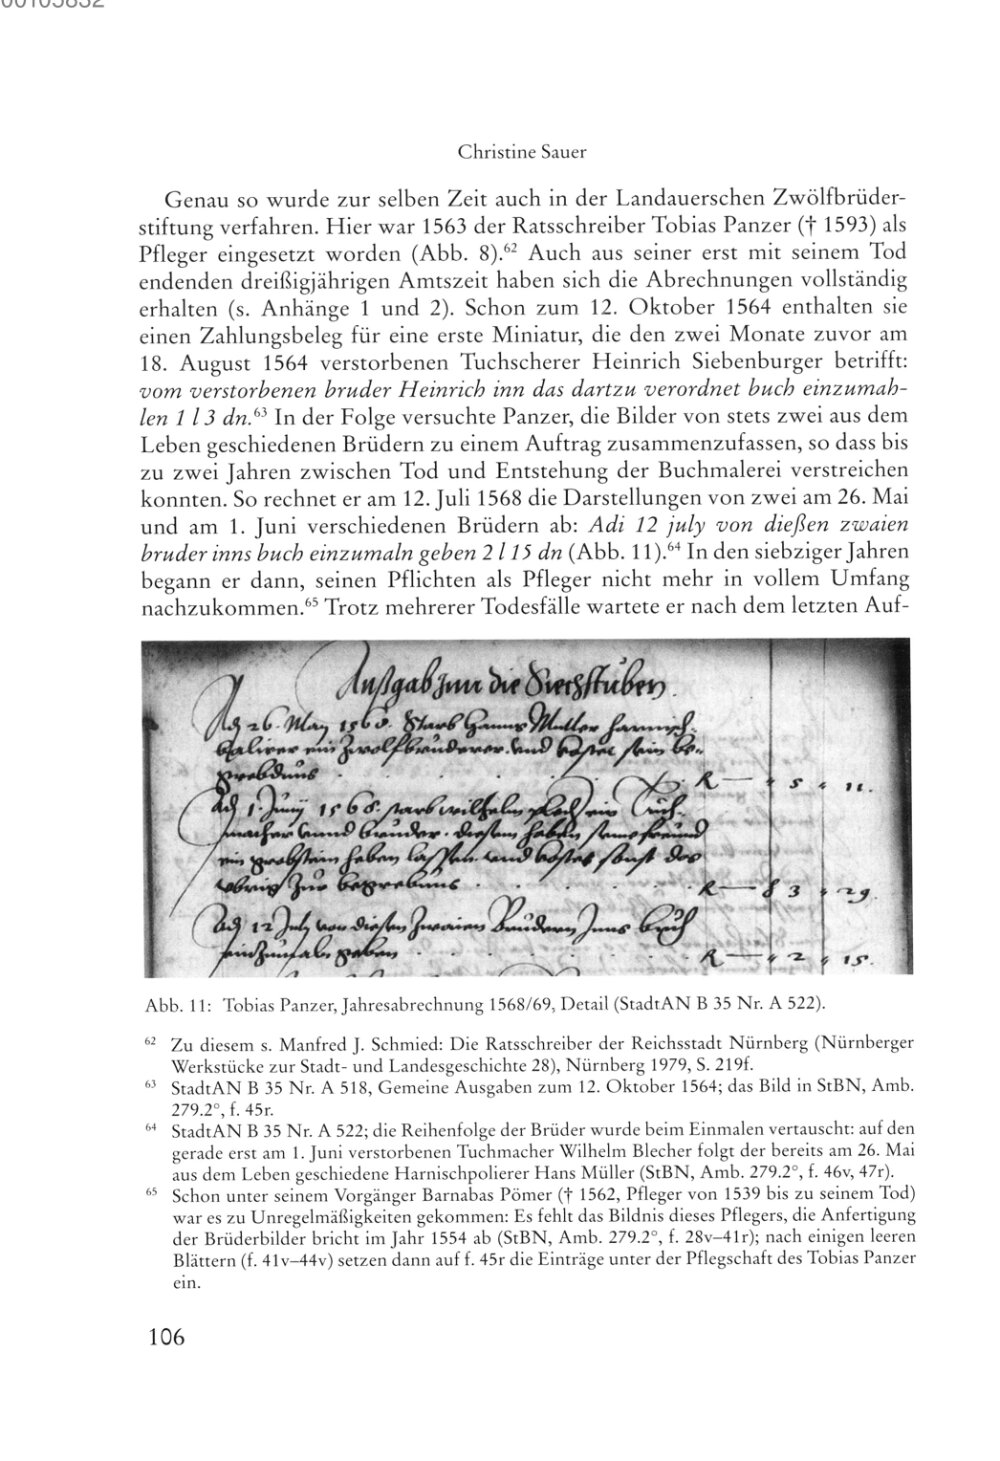 00105832
Christine Sauer
Genau so wurde zur selben Zeit auch in der Landauerschen Zwölfbrüder-
stiftung verfahren. Hier war 1563 der Ratsschreiber Tobias Panzer († 1593) als
Pfleger eingesetzt worden (Abb. 8).⁶² Auch aus seiner erst mit seinem Tod
endenden dreißigjährigen Amtszeit haben sich die Abrechnungen vollständig
erhalten (s. Anhänge 1 und 2). Schon zum 12. Oktober 1564 enthalten sie
einen Zahlungsbeleg für eine erste Miniatur, die den zwei Monate zuvor am
18. August 1564 verstorbenen Tuchscherer Heinrich Siebenburger betrifft:
vom verstorbenen bruder Heinrich inn das dartzu verordnet buch einzumah-
len 1 l 3 dn.⁶³ In der Folge versuchte Panzer, die Bilder von stets zwei aus dem
Leben geschiedenen Brüdern zu einem Auftrag zusammenzufassen, so dass bis
zu zwei Jahren zwischen Tod und Entstehung der Buchmalerei verstreichen
konnten. So rechnet er am 12. Juli 1568 die Darstellungen von zwei am 26. Mai
und am 1. Juni verschiedenen Brüdern ab: Adi 12 july von dießen zwaien
bruder inns buch einzumaln geben 2 l 15 dn (Abb. 11).⁶⁴ In den siebziger Jahren
begann er dann, seinen Pflichten als Pfleger nicht mehr in vollem Umfang
nachzukommen.⁶⁵ Trotz mehrerer Todesfälle wartete er nach dem letzten Auf-
Außgab Inn die Siechstuben
Adj 26. May 1568. Starb Hanns Müller harnisch-
balirer ein Zwolfbruderer vnd kostet sein be-
grebdnus R — 5 11.
Adj 1. Junij 1568. starb wilhelm plech ein Tuch-
macher vnnd bruder. diesem haben seine freund
ein grabstein haben lassen vnd kostet sonst das
vbrig Zur begrebnus R — 8 3 29
Adj 12 July von diesen Zwaien Brudern Inns buch
einZumaln geben R — 2 15.
Abb. 11: Tobias Panzer, Jahresabrechnung 1568/69, Detail (StadtAN B 35 Nr. A 522).
⁶² Zu diesem s. Manfred J. Schmied: Die Ratsschreiber der Reichsstadt Nürnberg (Nürnberger
Werkstücke zur Stadt- und Landesgeschichte 28), Nürnberg 1979, S. 219f.
⁶³ StadtAN B 35 Nr. A 518, Gemeine Ausgaben zum 12. Oktober 1564; das Bild in StBN, Amb.
279.2°, f. 45r.
⁶⁴ StadtAN B 35 Nr. A 522; die Reihenfolge der Brüder wurde beim Einmalen vertauscht: auf den
gerade erst am 1. Juni verstorbenen Tuchmacher Wilhelm Blecher folgt der bereits am 26. Mai
aus dem Leben geschiedene Harnischpolierer Hans Müller (StBN, Amb. 279.2°, f. 46v, 47r).
⁶⁵ Schon unter seinem Vorgänger Barnabas Pömer († 1562, Pfleger von 1539 bis zu seinem Tod)
war es zu Unregelmäßigkeiten gekommen: Es fehlt das Bildnis dieses Pflegers, die Anfertigung
der Brüderbilder bricht im Jahr 1554 ab (StBN, Amb. 279.2°, f. 28v–41r); nach einigen leeren
Blättern (f. 41v–44v) setzen dann auf f. 45r die Einträge unter der Pflegschaft des Tobias Panzer
ein.
106